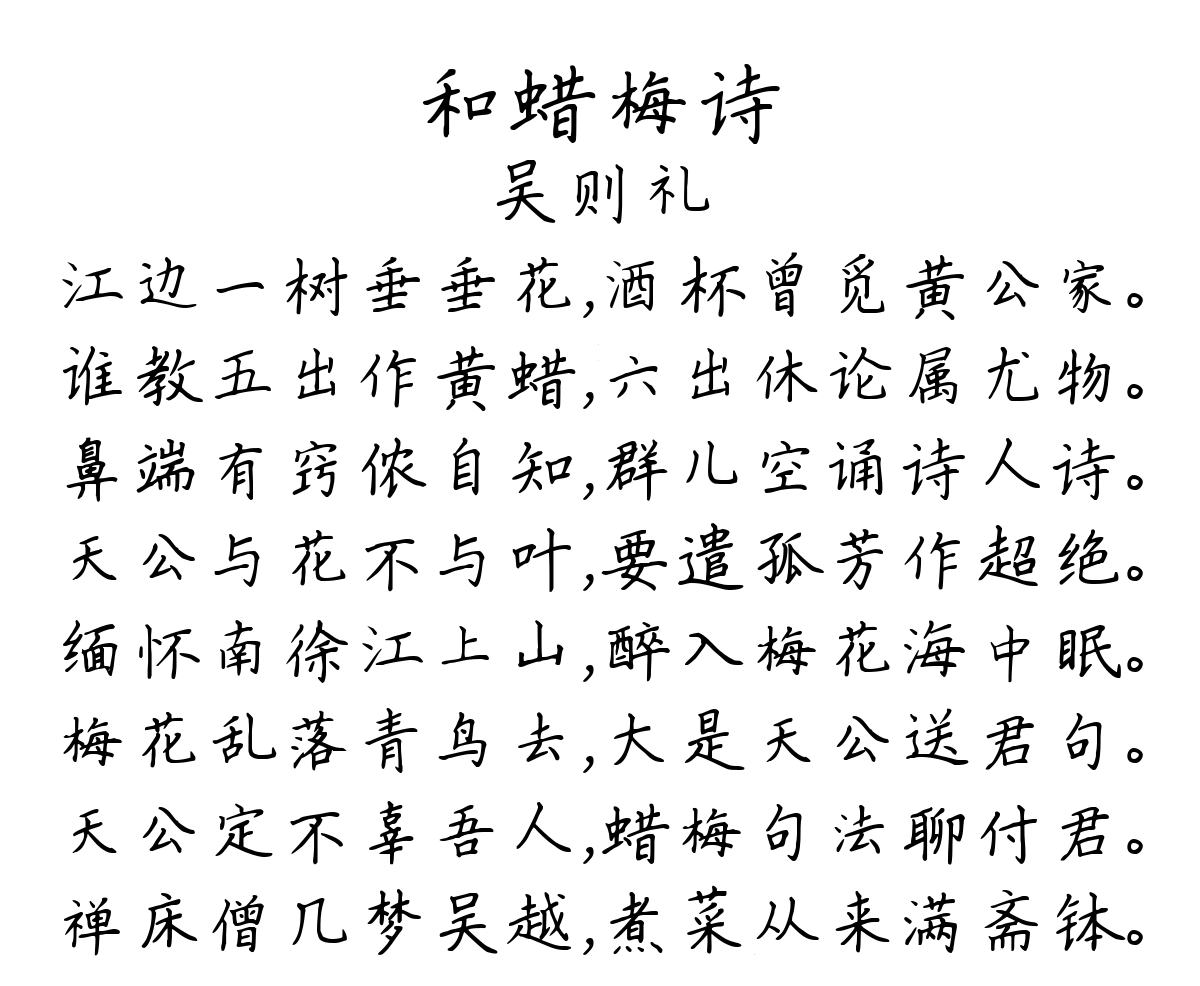 和蜡梅诗
吴则礼
江边一树垂垂花,酒杯曾觅黄公家。
谁教五出作黄蜡,六出休论属尤物。
鼻端有窍侬自知,群儿空诵诗人诗。
天公与花不与叶,要遣孤芳作超绝。
缅怀南徐江上山,醉入梅花海中眠。
梅花乱落青鸟去,大是天公送君句。
天公定不辜吾人,蜡梅句法聊付君。
禅床僧几梦吴越,煮菜从来满斋钵。